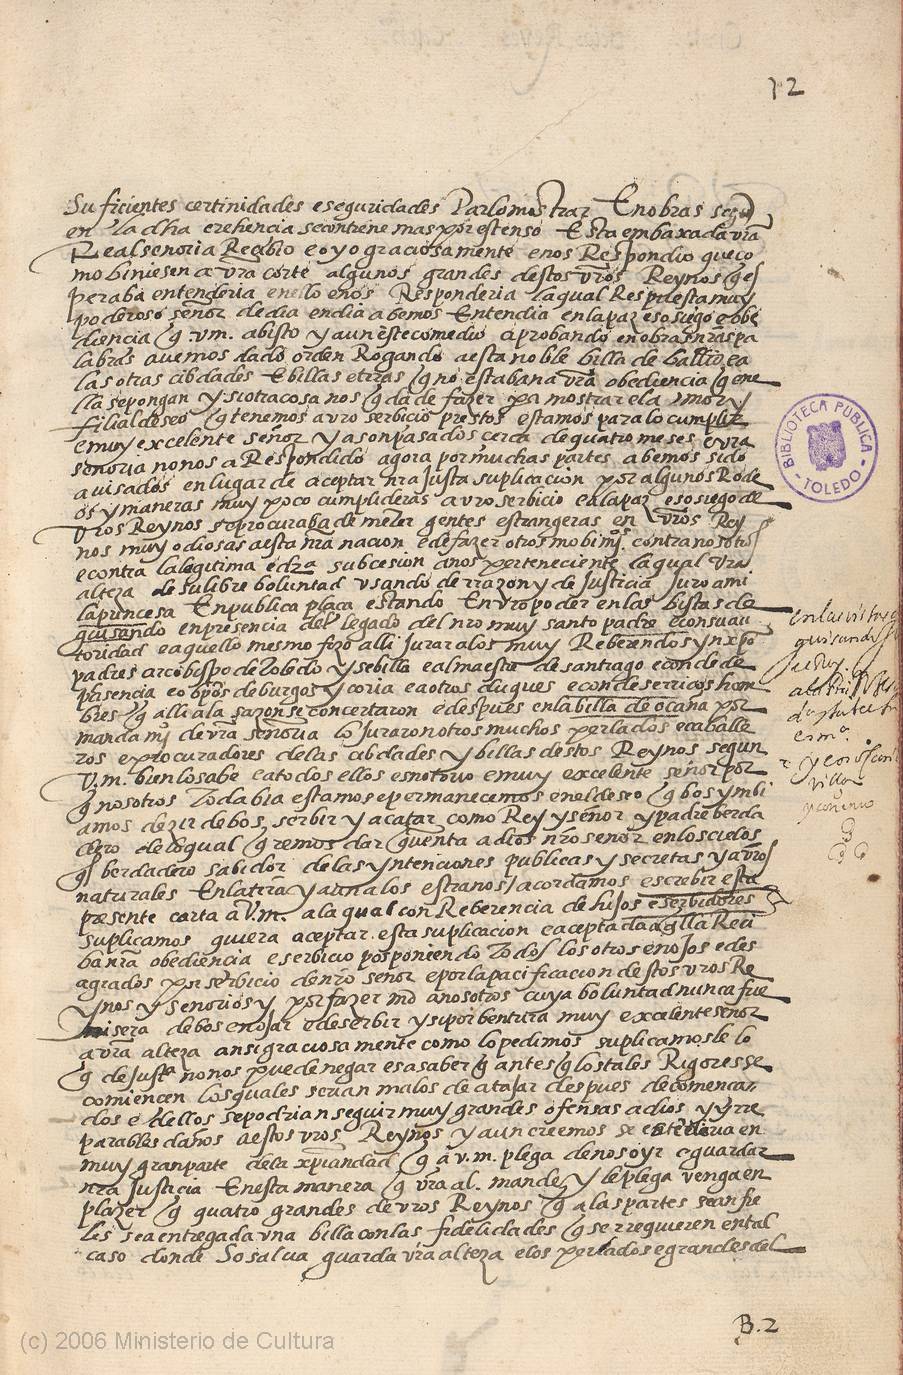 12
Suficientes certinidades e seguridades Para lo mostrar En obras segũ
en la dha crehencia se contiene mas por estenso Esta embaxada vrã
Real señoria Recibio e oyo graciosamente e nos Respondio que co
mo biniesen a vrã corte algunos grandes destos vrõs Reynos q̃ es
peraba entenderia en ello e nos Responderia la qual Respuesta muy
poderoso señor de dia en dia abemos Entendia en la paz e sosiego e obe
diencia q̃ .v.m. a bisto y aun ẽste comedio aprobando en obras nrãs pa
labras avemos dado orden Rogando a esta noble billa de ballid e a
las otras cibdades E billas e trras q̃ no estaban a vrã obediencia q̃ en e
lla se pongan y si otra cosa nos q̃da de fazer pa mostrar el amor y
filial deseo q̃ tenemos a vro serbicio prestos estamos para lo cumplir
e muy excelente señor ya son pasados cerca de quatro meses e vrã
señoria no nos a Respondido agora por muchas partes abemos sido
avisados en lugar de aceptar nrã justa suplicacion por algunos Rode
os y maneras muy poco cumplideras a vro serbicio e a la paz e sosiego de
vros Reynos se procuraba de meter gentes estrangeras en vrõs Rey
nos muy odiosas a esta nrã nacion e de fazer otros mobimjs contra nosotros
e contra la legitima e drã subcesion a nos perteneciente la qual vrã
alteza de su libre boluntad usando de rrazon y de justicia juro a mi
la princesa En publica plaça estando En vro poder en las bistas de
guisando en presencia del legado del nrõ muy santo padre e con su au
toridad e aquello mesmo fizo alli jurar a los muy Reberendos yn xp̃o
padres arcobispo de toledo y sebilla e al maestre de santiago e conde de
plasencia e obp̃os de burgos y coria e a otros duques e condes e rricos hom
bres q̃ alli a la sazon se concertaron e despues en la billa de ocaña por
mandamj de vrã señoria lo juraron otros muchos perlados e caballe
ros e procuradores de las cibdades y billas destos Reynos segun
V.m. bien lo sabe e a todos ellos es notorio e muy excelente señor por
q̃ nosotros Toda bia estamos e permanecemos en el deseo q̃ bos ymbi
amos dezir de bos serbir y acatar como Rey y señor y padre berda
dero de lo qual q̃remos dar q̃uenta a dios nrõ señor en los cielos
q̃s berdadero sabidor de las yntenciones publicas y secretas y a vrõs
naturales En la tierra y aun a los estraños / acordamos escrebir esta
presente carta a V.m. a la qual con Reberencia de hijos e serbidores
suplicamos quiera aceptar esta suplicacion e aceptada aq̃lla Reci
ba nrã obediencia e serbicio posponiendo Todos los otros enojos e des
agrados por serbicio de nrõ señor e por la pacificacion destos vros Re
ynos y señorios y por fazer md a nosotros cuya boluntad nunca fue
ni sera de bos enojar e deserbir y si por bentura muy excelente señor
a vrã alteza ansi graciosamente como lo pedimos suplicamosle lo
q̃ de justa no nos puede negar es a saber q̃ antes q̃ los tales Rigores se
comiencen los quales serian malos de atajar despues de comenca
dos e dellos se podrian seguir muy grandes ofensas a dios y yrre
parables daños a estos vros Reynos y aun creemos se estenderia en
muy gran parte de la xp̃iandad q̃ a v.m. plega de nos oyr e guardar
nrã justicia En esta manera q̃ vrã al. mande y le plega venga en
plazer q̃ quatro grandes de vros Reynos q̃ a las partes sean fie
les sea entregada una billa con las fidelidades q̃ se rrequieren en tal
caso donde so salva guarda vrã alteza e los perlados e grandes del
en la vistas
guisando
BIBLIOTECA PUBLICA
- TOLEDO -
B.2
(c) 2006 Ministerio de Cultura